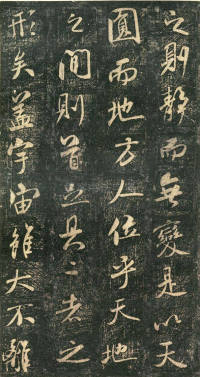 之則靜而無變是以天
圓而地方人位乎天地
之間則首之具二者之
形矣蓋宇宙雖大不離